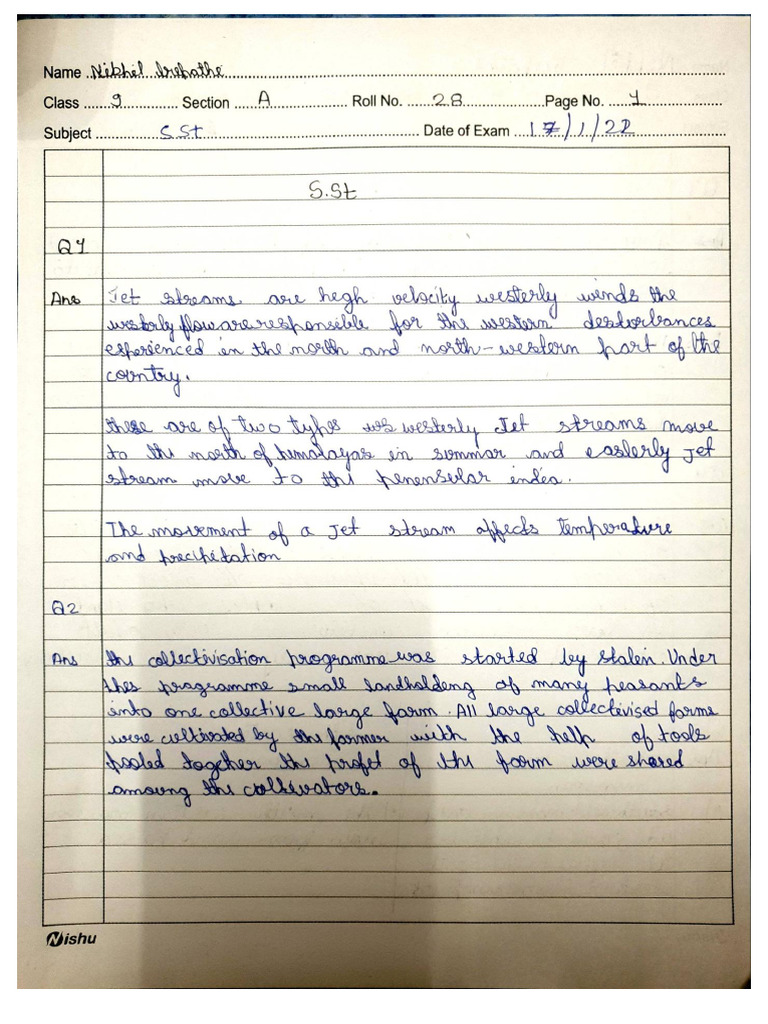 Name Nikhil
Class 9 Section A Roll No. 28 Page No. 1
Subject S.St Date of Exam 17/1/22
S.St
Q1
Ans Jet streams are hegh velocity westerly winds the
westerly flow are responsible for the western desturbances
esperienced in the north and north-western part of the
country.
these are of two types westerly Jet streams move
to the north of himalayas in summar and easlerly Jet
stream move to the penensular indea.
The movement of a Jet stream affects temperature
and precipetation
Q2
Ans the collectivisation programme was started by stalen. Under
thes programme small landholdeng of many peasants
into one collective large farm. All large collectivised farms
were cultivated by the farmer with the help of tools
pooled together the profet of the farm were shared
amoung the coltevators.
Nishu